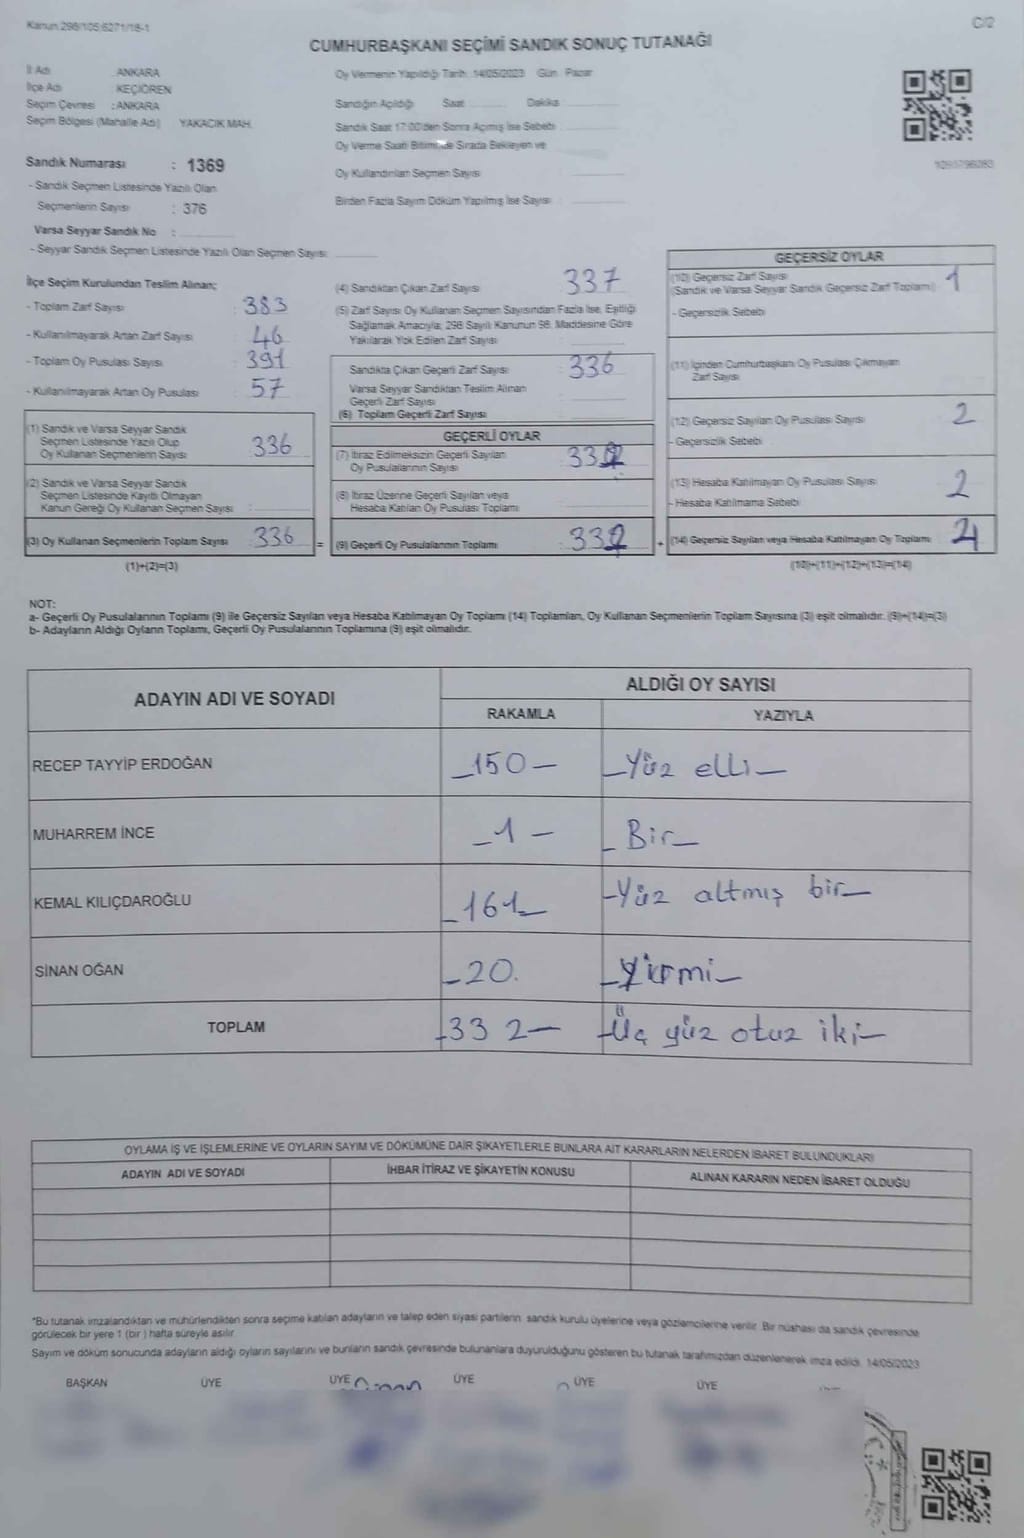 Kanun 298/105;6271/18-1
C/2
CUMHURBAŞKANI SEÇİMİ SANDIK SONUÇ TUTANAĞI
İl Adı : ANKARA
İlçe Adı : KEÇİÖREN
Seçim Çevresi : ANKARA
Seçim Bölgesi (Mahalle Adı) YAKACIK MAH.
Sandık Numarası : 1369
- Sandık Seçmen Listesinde Yazılı Olan
Seçmenlerin Sayısı : 376
Varsa Seyyar Sandık No :
- Seyyar Sandık Seçmen Listesinde Yazılı Olan Seçmen Sayısı:
Oy Vermenin Yapıldığı Tarih : 14/05/2023 Gün : Pazar
Sandığın Açıldığı Saat Dakika
Sandık Saat 17:00'den Sonra Açılmış İse Sebebi
Oy Verme Saati Bitiminde Sırada Bekleyen ve
Oy Kullandırılan Seçmen Sayısı
Birden Fazla Sayım Döküm Yapılmış İse Sayısı
İlçe Seçim Kurulundan Teslim Alınan;
- Toplam Zarf Sayısı : 383
- Kullanılmayarak Artan Zarf Sayısı : 46
- Toplam Oy Pusulası Sayısı : 391
- Kullanılmayarak Artan Oy Pusulası : 57
(1) Sandık ve Varsa Seyyar Sandık
Seçmen Listesinde Yazılı Olup
Oy Kullanan Seçmenlerin Sayısı 336
(2) Sandık ve Varsa Seyyar Sandık
Seçmen Listesinde Kayıtlı Olmayan
Kanun Gereği Oy Kullanan Seçmen Sayısı
(3) Oy Kullanan Seçmenlerin Toplam Sayısı 336 =
(1)+(2)=(3)
(4) Sandıktan Çıkan Zarf Sayısı 337
(5) Zarf Sayısı Oy Kullanan Seçmen Sayısından Fazla İse, Eşitliği
Sağlamak Amacıyla, 298 Sayılı Kanunun 98. Maddesine Göre
Yakılarak Yok Edilen Zarf Sayısı
Sandıkta Çıkan Geçerli Zarf Sayısı : 336
Varsa Seyyar Sandıktan Teslim Alınan
Geçerli Zarf Sayısı
(6) Toplam Geçerli Zarf Sayısı
GEÇERLİ OYLAR
(7) İtiraz Edilmeksizin Geçerli Sayılan
Oy Pusulalarının Sayısı 332
(8) İtiraz Üzerine Geçerli Sayılan veya
Hesaba Katılan Oy Pusulası Toplamı
(9) Geçerli Oy Pusulalarının Toplamı : 332 +
GEÇERSİZ OYLAR
(10) Geçersiz Zarf Sayısı 1
(Sandık ve Varsa Seyyar Sandık Geçersiz Zarf Toplamı)
- Geçersizlik Sebebi
(11) İçinden Cumhurbaşkanı Oy Pusulası Çıkmayan
Zarf Sayısı
(12) Geçersiz Sayılan Oy Pusulası Sayısı 2
- Geçersizlik Sebebi
(13) Hesaba Katılmayan Oy Pusulası Sayısı 2
- Hesaba Katılmama Sebebi
(14) Geçersiz Sayılan veya Hesaba Katılmayan Oy Toplamı
(10)+(11)+(12)+(13)=(14)
NOT:
a- Geçerli Oy Pusulalarının Toplamı (9) ile Geçersiz Sayılan veya Hesaba Katılmayan Oy Toplamı (14) Toplamları, Oy Kullanan Seçmenlerin Toplam Sayısına (3) eşit olmalıdır. (9)+(14)=(3)
b- Adayların Aldığı Oyların Toplamı, Geçerli Oy Pusulalarının Toplamına (9) eşit olmalıdır.
ADAYIN ADI VE SOYADI
ALDIĞI OY SAYISI
RAKAMLA YAZIYLA
RECEP TAYYİP ERDOĞAN -150- -Yüz elli-
MUHARREM İNCE -1- -Bir-
KEMAL KILIÇDAROĞLU -161- -Yüz altmış bir-
SİNAN OĞAN -20. -Yirmi-
TOPLAM -332- -Üç yüz otuz iki-
OYLAMA İŞ VE İŞLEMLERİNE VE OYLARIN SAYIM VE DÖKÜMÜNE DAİR ŞİKAYETLERLE BUNLARA AİT KARARLARIN NELERDEN İBARET BULUNDUKLARI
ADAYIN ADI VE SOYADI İHBAR İTİRAZ VE ŞİKAYETİN KONUSU ALINAN KARARIN NEDEN İBARET OLDUĞU
*Bu tutanak imzalandıktan ve mühürlendikten sonra seçime katılan adayların ve talep eden siyasi partilerin sandık kurulu üyelerine veya gözlemcilerine verilir. Bir nüshası da sandık çevresinde
görülecek bir yere 1 (bir) hafta süreyle asılır.
Sayım ve döküm sonucunda adayların aldığı oyların sayılarını ve bunların sandık çevresinde bulunanlara duyurulduğunu gösteren bu tutanak tarafımızdan düzenlenerek imza edildi. 14/05/2023
BAŞKAN ÜYE ÜYE ÜYE ÜYE ÜYE